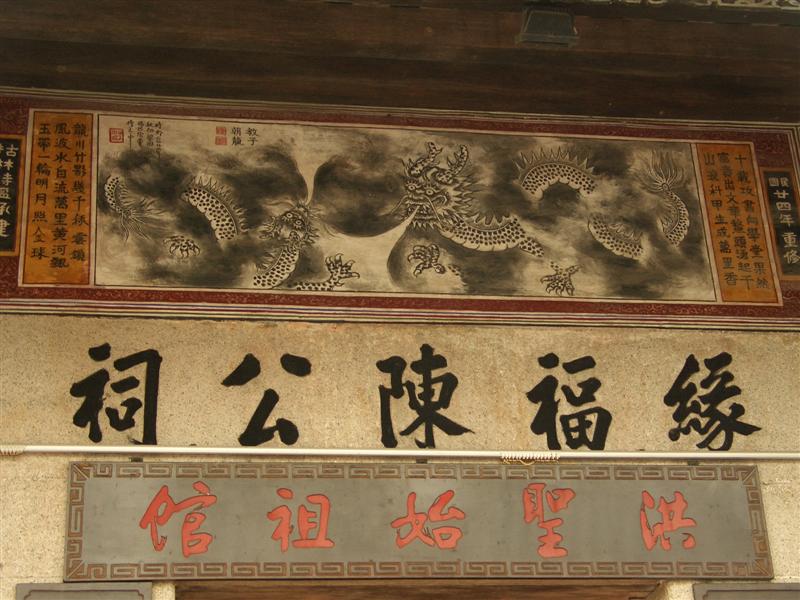 民國廿四年重修
十載攻書向學堂果然
富貴出文章鰲頭湧起千
山浪科甲生成萬里香
教子
朝龍
龍川竹影幾千秋雲鎖
風波水自流萬里黃河飄
玉帶一輪明月照金球
承建
緣福陳公祠
洪聖始祖館